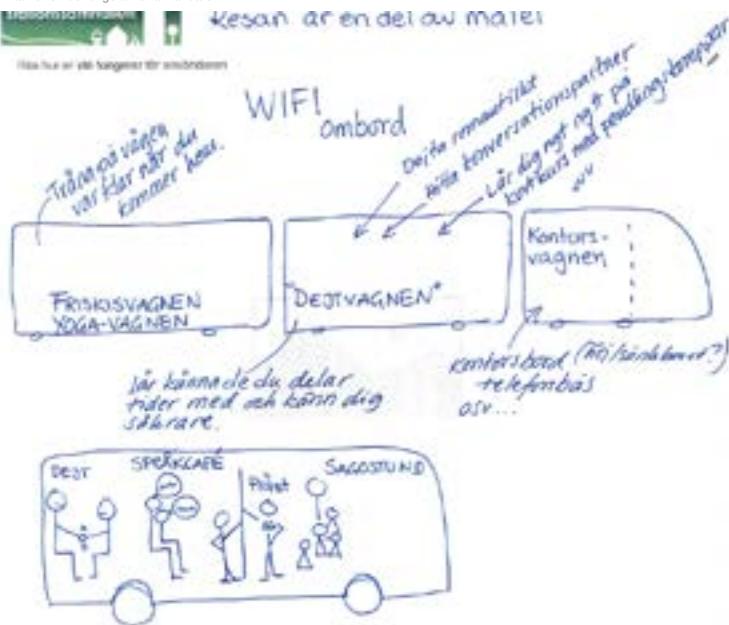 Stationssamhället
Resan är en del av målet
WIFI
ombord
Träna på vägen
var klar när du
kommer hem.
Dejta romantiskt
Hitta konversationspartner
Lär dig ngt nytt på
kort kurs med pendlingskompisar
Kontors-
vagnen
FRISKISVAGNEN
YOGA-VAGNEN
"DEJTVAGNEN"
lär känna de du delar
tider med och känn dig
säkrare.
kontorsbord
telefonbås
osv...
DEJT
SPRÅKCAFÉ
SAGOSTUND